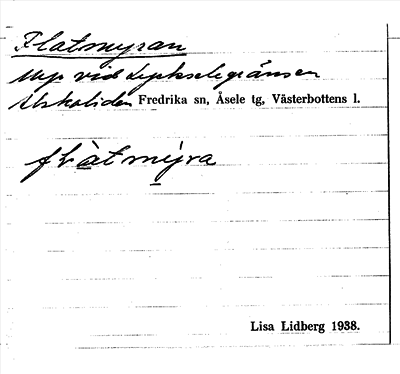 Flatmyran
myr vid Lyckselegränsen
Alskaliden Fredrika sn, Åsele tg, Västerbottens l.
flàtmỳra
Lisa Lidberg 1938.